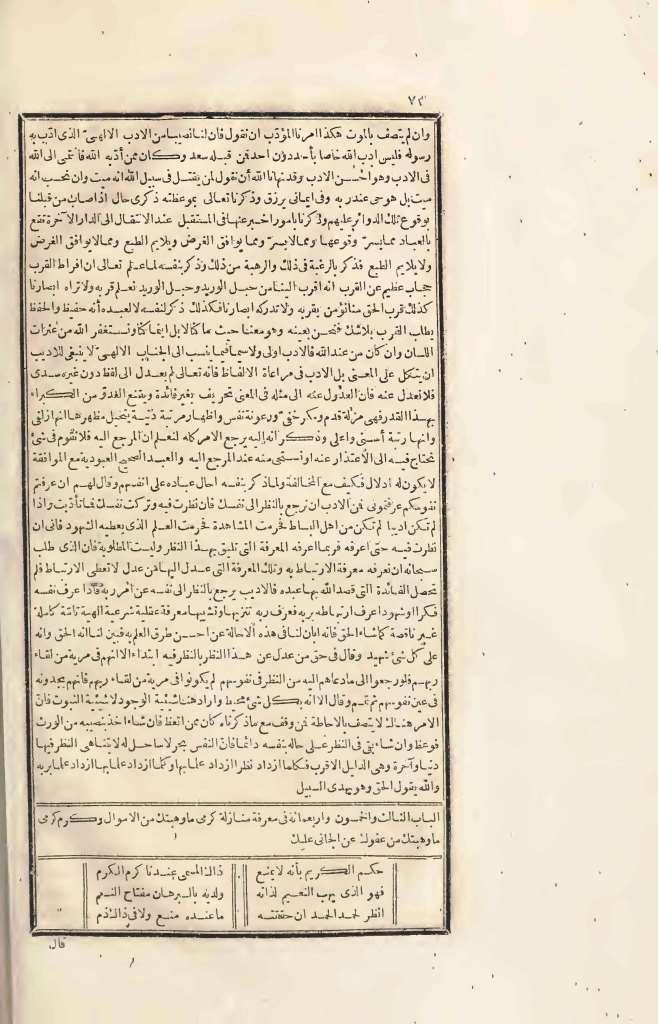 ٧٣
وان لم يتصف بالموت هكذا امرنا المؤدّب ان نقول فان لنا نصيبا من الادب الالهىّ الذى ادّب به
رسوله فليس ادب الله خاصا بأحد دون احد فمن قبله سعد وكان ممن أدّبه الله فانتمى الى الله
فى الادب وهو احسن الادب وقد نهانا الله أن نقول لمن يقتل فى سبيل الله انه ميت وان نحسب انه
ميت بل هو حىّ عند ربه وفى ايمانى يرزق وذكرنا تعالى بموعظته ذكرى حال اذا صاب من قبلنا
بوقوع تلك الدوائر عليهم وذكرنا بأمور اخبر عنها فى المستقبل عند الانتقال الى الدار الآخرة تقع
بالعباد مما يسرّ وقوعها ومما لا يسرّ ومما يوافق الغرض ويلايم الطبع ومما لا يوافق الغرض
ولا يلايم الطبع فذكر بالرغبة فى ذلك والرهبة من ذلك وذكر بنفسه لما علم تعالى ان افراط القرب
حجاب عظيم عن القرب انه اقرب الينا من حبل الوريد وحبل الوريد نعلم قربه ولا تراه ابصارنا
كذلك قرب الحق منا نؤمن بقربه ولا تدركه ابصارنا فكذلك ذكر لنفسه لا لعبده أنه حفيظ والحفظ
يطلب القرب بلا شك فنحن بعينه وهو معنا حيث ما كنا لا بل اينما كنا ونستغفر الله من عثرات
اللسان وان كان من عند الله فالادب اولى ولا سيما فيما ينسب الى الجناب الالهىّ لا ينبغى للاديب
ان يتكل على المعنى بل الادب فى مراعاة الالفاظ فانه تعالى لم يعدل الى لفظ دون غيره سدى
فلا نعدل عنه فان العدول عنه الى مثله فى المعنى تحريف بغير فائدة ويقنع العدوّ من الكبراء
بهذا القدر فهى مزلة قدم ومكر خفىّ ورعونة نفس واظهار مرتبة دنية يتخيل مظهرها انها زلفى
وانها رتبة أسنى واعلى وذكر انه إليه يرجع الامر كله لنعلم ان المرجع اليه فلا نقوم فى شئ
نحتاج فيه الى الاعتذار عنه او استحى منه عند المرجع اليه والعبد الصحيح العبودية مع الموافقة
لا يكون له ادلال فكيف مع المخالفة ولما ذكر بنفسه احال عباده على انفسهم وقال لهم ان عرفتم
نفوسكم عرفتمونى فمن الادب ان نرجع بالنظر الى نفسك فان نظرت فيه وتركت نفسك فما تأدّبت واذا
لم تكن اديبا لم تكن من اهل البساط فحرمت المشاهدة فحرمت العلم الذى يعطيه الشهود فانى ان
نظرت فيه حتى اعرفه فربما اعرفه المعرفة التى تليق بهذا النظر وليست المطلوبة فان الذى طلب
سبحانه ان نعرفه معرفة الارتباط به وتلك المعرفة التى عدل اليها من عدل لا تعطى الارتباط فلم
تحصل الفائدة التى قصد الله بها عبده فالاديب يرجع بالنظر الى نفسه عن امر ربه فاذا عرف نفسه
فكرا وشهودا عرف ارتباطه بربه فعرف ربه تنزيها وتشبيها معرفة عقلية شرعية الهية تامّة كاملة
غير ناقصة كما شاء الحق فانه ابان لنا فى هذه الاحالة عن احسن طرق العلم به فبين لنا انه الحق وانه
على كل شئ شهيد وقال فى حق من عدل عن هذا النظر بالنظر فيه ابتداء الا انهم فى مرية من لقاء
ربهم فلو رجعوا الى ما دعاهم اليه من النظر فى نفوسهم لم يكونوا فى مرية من لقاء ربهم فانهم يجدونه
فى عين نفوسهم ثم تمم وقال الا انه بكل شئ محيط واراد هنا شيئية الوجود لا شيئية الثبوت فانّ
الامر هناك لا يتصف بالاحاطة فمن وقف مع ما ذكرناه كان ممن اتعظ فان شاء اخذ بنصيبه من الورث
فوعظ وان شاء بقى فى النظر على حاله بنفسه دائما فانّ النفس بحر لا ساحل له لا يتناهى النظر فيها
دنيا وآخرة وهى الدليل الاقرب فكلما ازداد نظرا ازداد علما بها وكلما ازداد علما بها ازداد علما بربه
والله يقول الحق وهو يهدى السبيل
الباب الثالث والخمسون واربعمائة فى معرفة منازلة كرمى ما وهبتك من الاموال وكرم كرمى
ما وهبتك من عفوك عن الجانى عليك
حكم الكريم بأنه لا يمنع ذاك المسمى عندنا كرم الكرم
فهو الذى يهب النعيم لذاته ولديه بالبرهان مفتاح النعم
انظر لحمد الحمد ان حققته ما عنده منع ولا فى ذاك ذم
قال